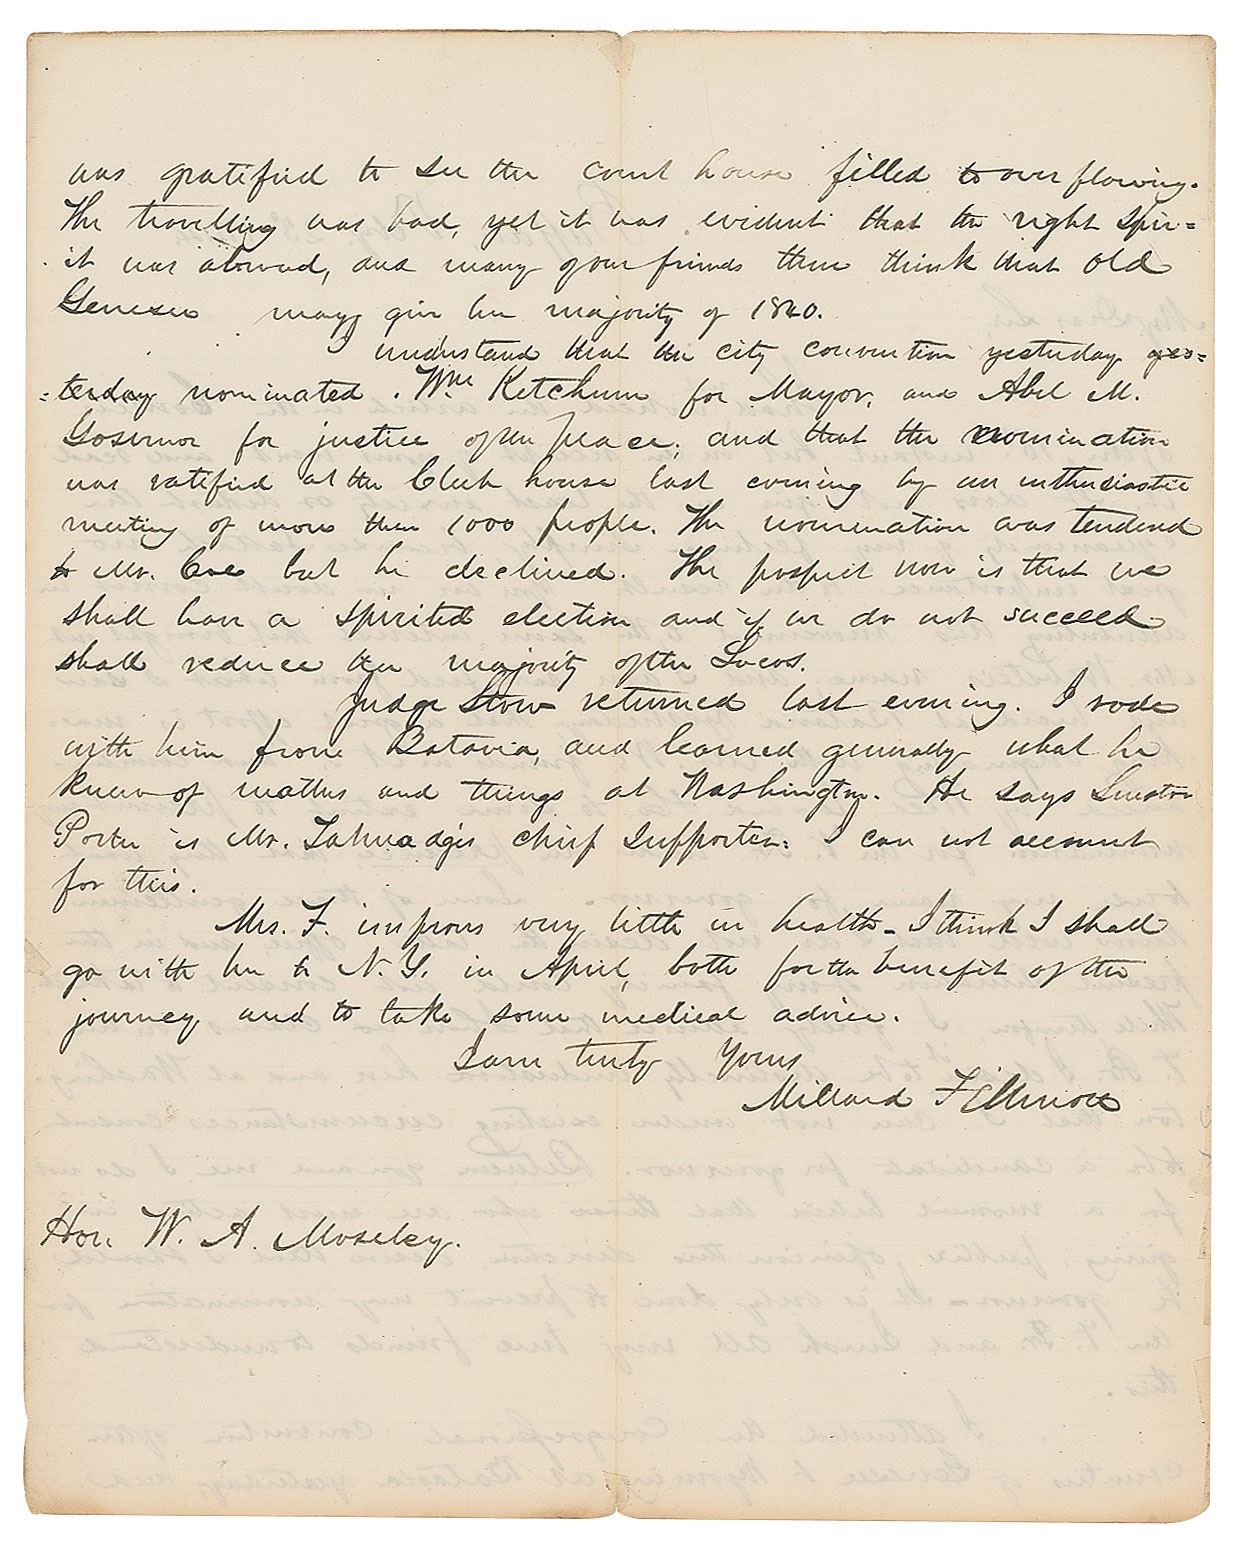 was gratified to see the court house filled to overflowing.
The travelling was bad, yet it was evident that the right spir=
it was abroad, and many of our friends there think that Old
Genesee may give her majority of 1840.
I understand that the city convention yesterday yes=
=terday nominated Wm Ketchum for Mayor, and Abel M.
Grosvenor for justice of the peace; and that the nomination
was ratified at the Club house last evening by an enthusiastic
meeting of more than 1000 people. The nomination was tendered
to Mr. Coe but he declined. The prospect now is that we
shall have a spirited election and if we do not succeed
shall reduce the majority of the Locos.
Judge Stow returned last evening. I rode
with him from Batavia, and learned generally what he
knew of matters and things at Washington. He says Senator
Porter is Mr. Talmadge's chief supporter. I can not account
for this.
Mrs. F. improves very little in health – I think I shall
go with her to N.Y. in April, both for the benefit of the
journey and to take some medical advice.
I am truly Yours
Millard Fillmore
Hon. W. A. Moseley.